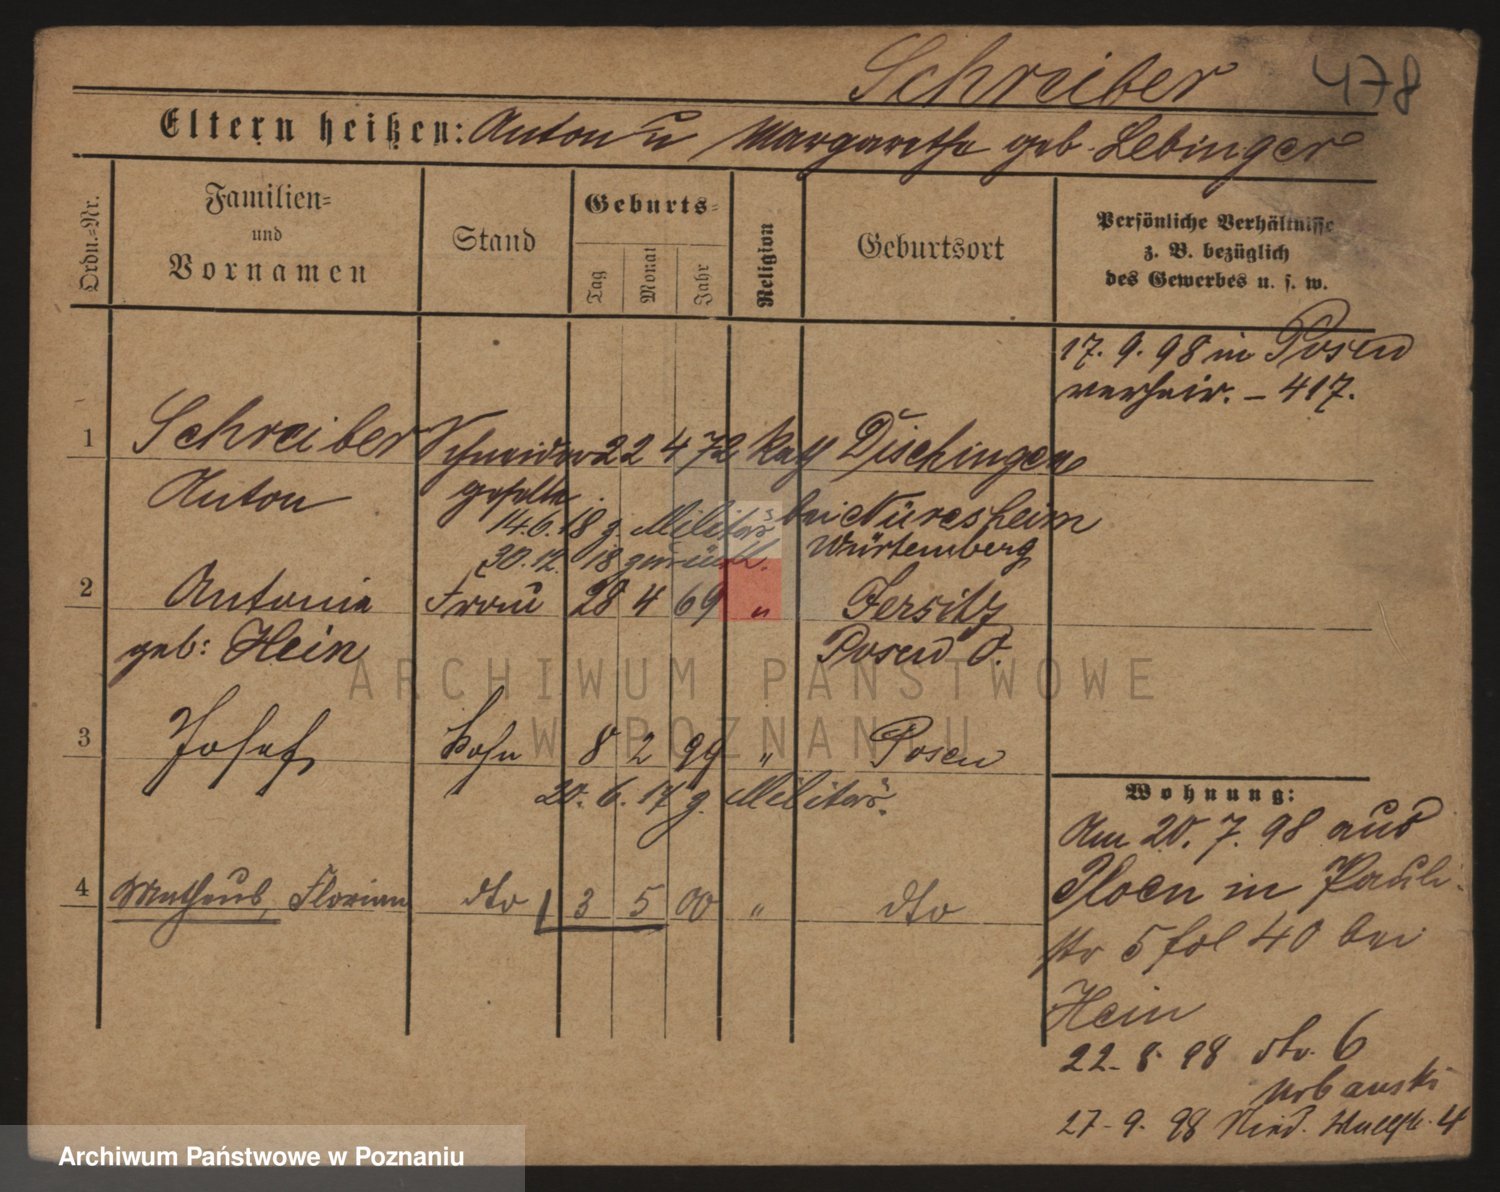 Schreiber 478
Eltern heißen: Anton u Margarethe geb. Lebinger
Ordn.-Nr.
Familien-
und
Vornamen
Stand
Geburts-
Tag
Monat
Jahr
Religion
Geburtsort
Persönliche Verhältnisse
z. B. bezüglich
des Gewerbes u. s. w.
17. 9. 98 in Posen
verheir. - 417.
1 Schreiber Schneider 22 4 72 kath Dischingen
Anton geselle bei Nüresheim
14.6.18 z. Militär Würtemberg
30.12.18 zurück.
2 Antonie Frau 28 4 69 " Jersitz
geb: Hein Posen O.
3 Josef Sohn 8 2 99 " Posen
20. 6. 17 z. Militär.
4 Matheus, Florian dto 3 5 00 " dto
Wohnung:
Am 20. 7. 98 aus
in Pauli-
str 5 fol 40 bei
Hein
22. 8. 98 dto. 6
Urbanski
27. 9. 98 Nied. Wallstr. 4
ARCHIWUM PAŃSTWOWE
W POZNANIU
Archiwum Państwowe w Poznaniu